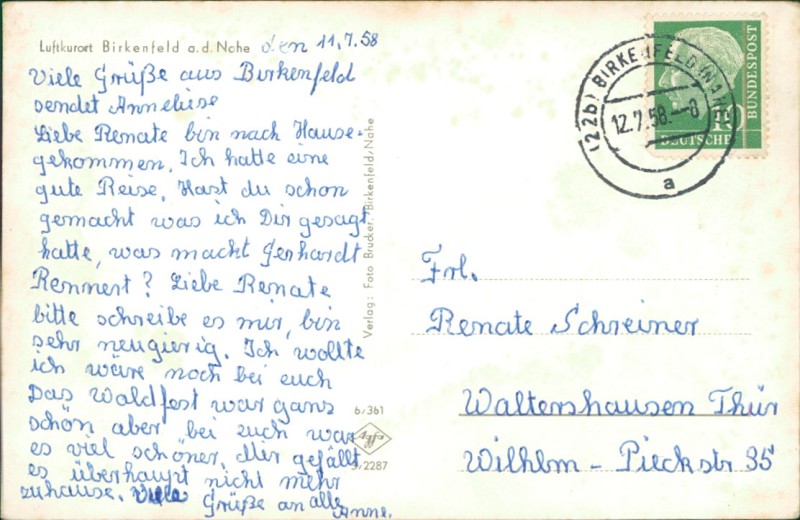 Luftkurort Birkenfeld a. d. Nahe den 11.7.58
Viele Grüße aus Birkenfeld
sendet Anneliese
Liebe Renate bin nach Hause
gekommen. Ich hatte eine
gute Reise. Hast du schon
gemacht was ich Dir gesagt
hatte, was macht Gerhardt
Rennert? Liebe Renate
bitte schreibe es mir, bin
sehr neugierig. Ich wollte
ich wäre noch bei euch
Das Waldfest war ganz
schön aber bei euch war
es viel schöner. Mir gefällt
es überhaupt nicht mehr
zuhause. Viele Grüße an alle
Anne.
Verlag: Foto Brucker, Birkenfeld/Nahe
6/361
Agfa
5/2287
(22b) BIRKENFELD (NAHE)
12.7.58.–8
a
10
DEUTSCHE
BUNDESPOST
Frl.
Renate Schreiner
Waltershausen Thür
Wilhlm - Pieckstr 35